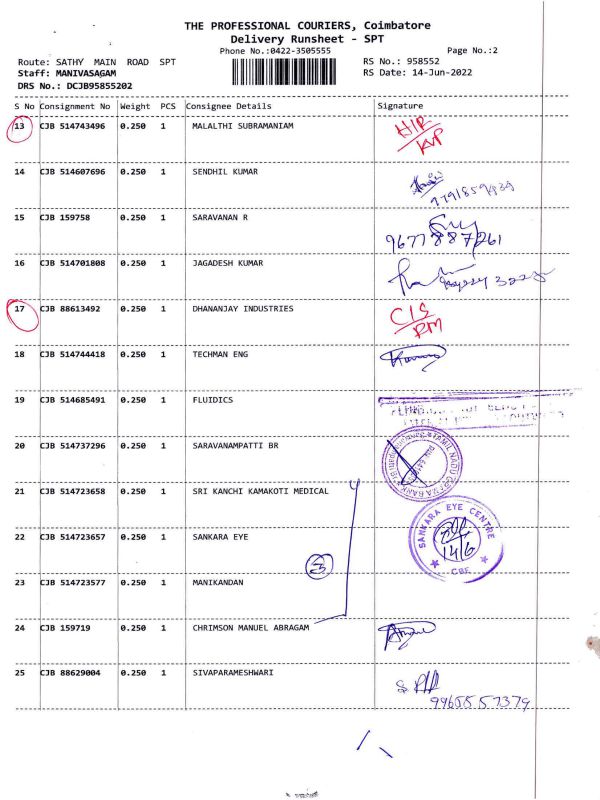 THE PROFESSIONAL COURIERS, Coimbatore
Delivery Runsheet - SPT
Phone No.:0422-3505555
Page No.:2
Route: SATHY MAIN ROAD SPT
RS No.: 958552
Staff: MANIVASAGAM
RS Date: 14-Jun-2022
DRS No.: DCJB95855202
S No Consignment No Weight PCS Consignee Details Signature
13 CJB 514743496 0.250 1 MALALTHI SUBRAMANIAM
14 CJB 514607696 0.250 1 SENDHIL KUMAR
15 CJB 159758 0.250 1 SARAVANAN R
9677887261
16 CJB 514701808 0.250 1 JAGADESH KUMAR
17 CJB 88613492 0.250 1 DHANANJAY INDUSTRIES
18 CJB 514744418 0.250 1 TECHMAN ENG
19 CJB 514685491 0.250 1 FLUIDICS
20 CJB 514737296 0.250 1 SARAVANAMPATTI BR
21 CJB 514723658 0.250 1 SRI KANCHI KAMAKOTI MEDICAL
22 CJB 514723657 0.250 1 SANKARA EYE
SANKARA EYE CENTRE
14/6
CBE
3
23 CJB 514723577 0.250 1 MANIKANDAN
24 CJB 159719 0.250 1 CHRIMSON MANUEL ABRAGAM
25 CJB 88629004 0.250 1 SIVAPARAMESHWARI